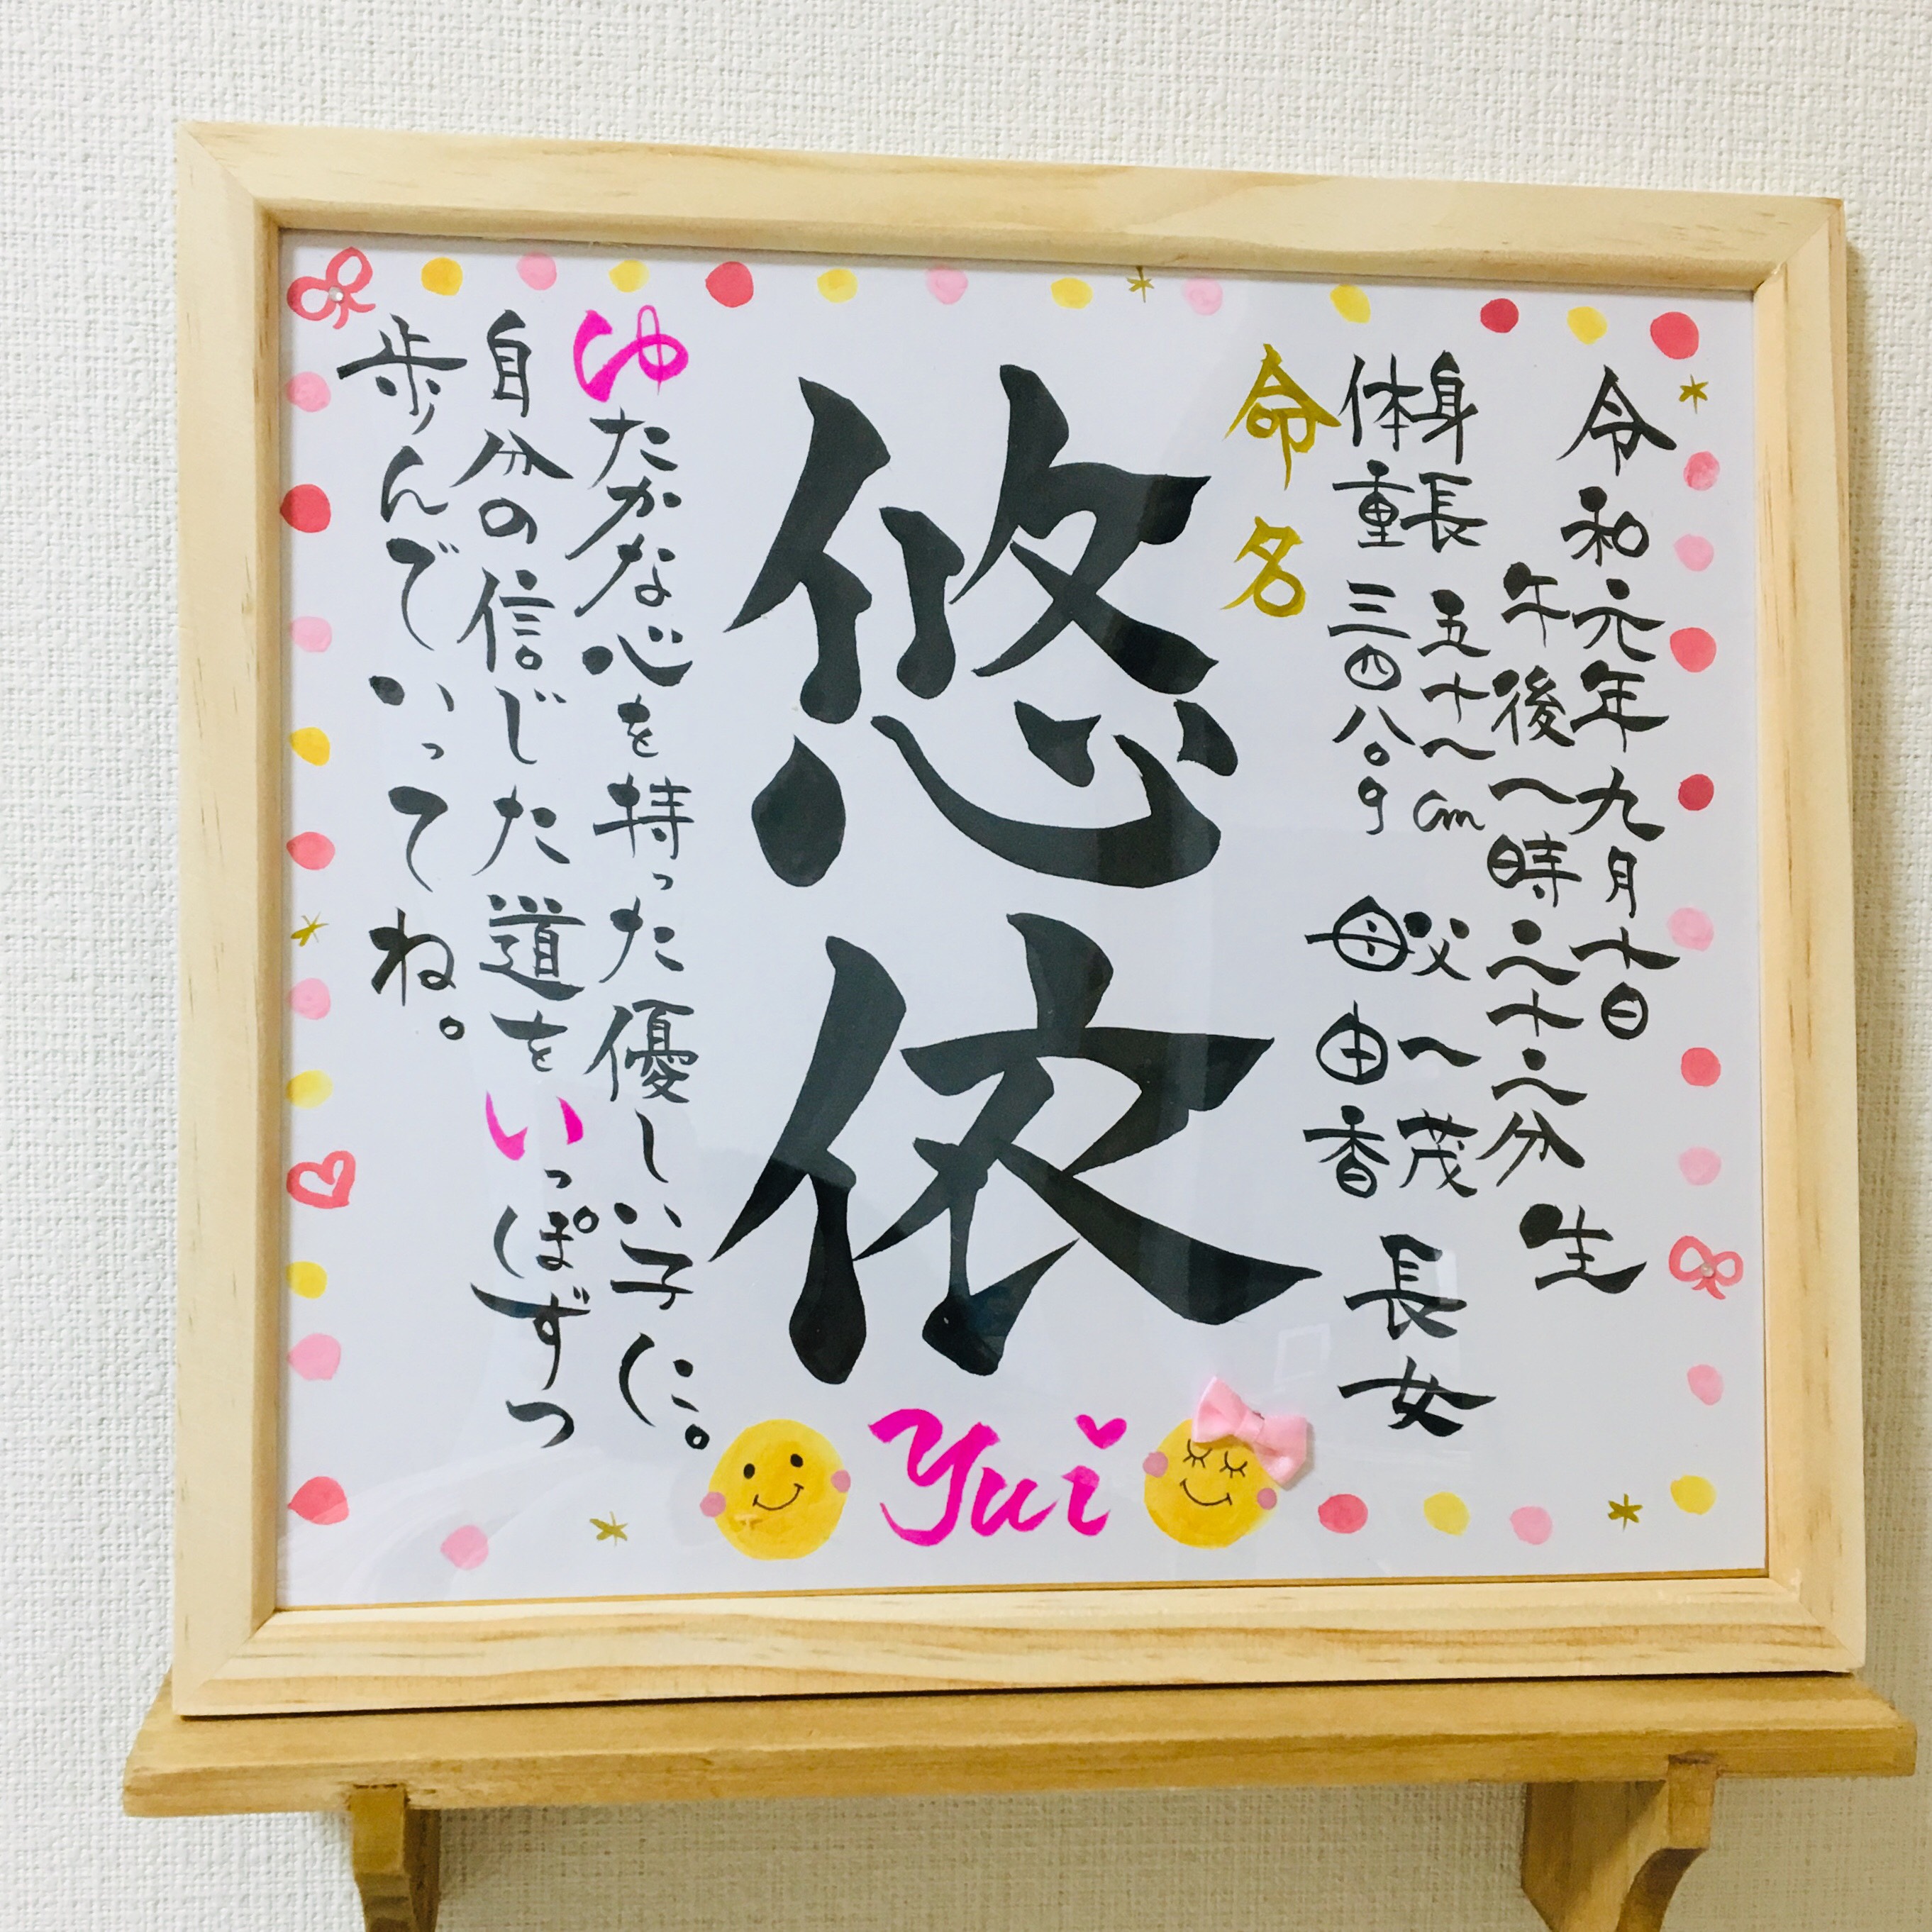 令和元年九月十日
午後一時二十二分
生
身長 五十一cm
体重 三四八〇g
父 一茂
母 由香
長女
命名
悠依
Yui
ゆたかな心を持った優しい子に。
自分の信じた道をいっぽずつ
歩んでいってね。